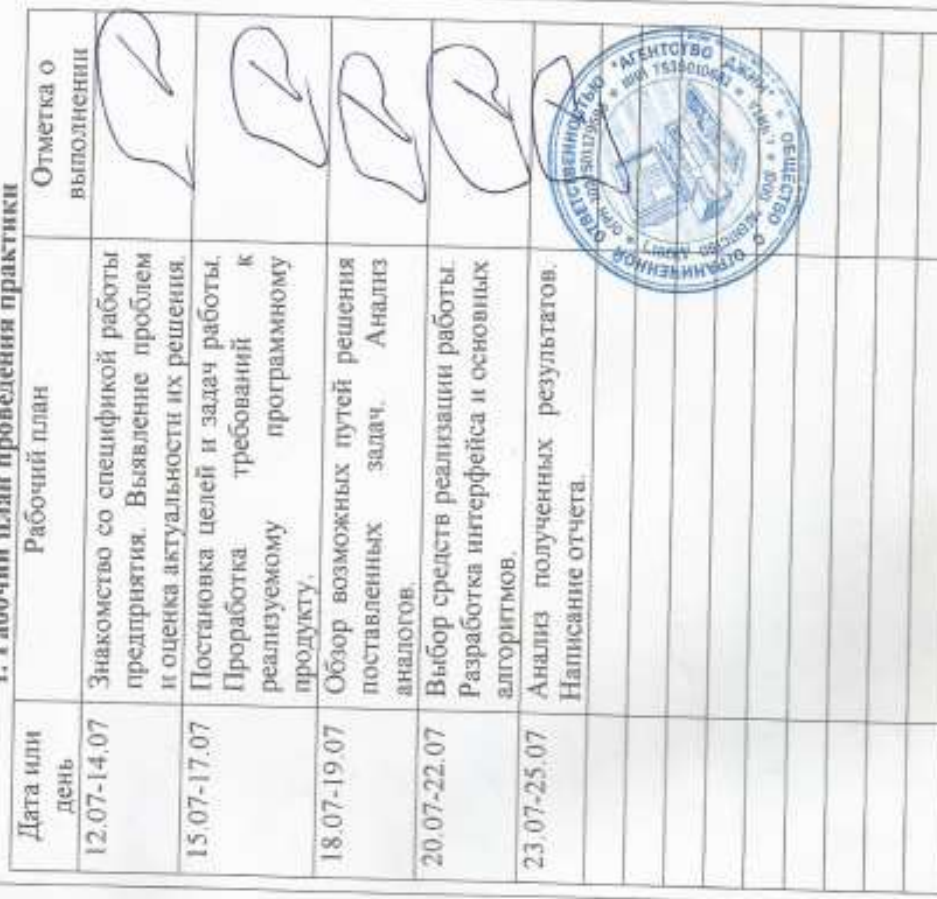 1. Рабочий план проведения практики
Дата или
день
Рабочий план
Отметка о
выполнении
12.07-14.07
Знакомство со спецификой работы
предприятия. Выявление проблем
и оценка актуальности их решения.
15.07-17.07
Постановка целей и задач работы.
Проработка требований к
реализуемому программному
продукту.
18.07-19.07
Обзор возможных путей решения
поставленных задач. Анализ
аналогов.
20.07-22.07
Выбор средств реализации работы.
Разработка интерфейса и основных
алгоритмов.
23.07-25.07
Анализ полученных результатов.
Написание отчета.
ОБЩЕСТВО С ОГРАНИЧЕННОЙ ОТВЕТСТВЕННОСТЬЮ "АГЕНТСТВО ДЖИН"